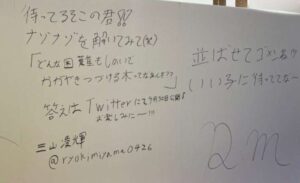 待ってるそこの君!!
ナゾナゾを解いてみて(笑)
「どんな困難もしのいで
かがやきつづける木ってなぁんだ??」
答えは Twitterにて9月30日公開!
お楽しみにー!!!
三山凌輝
@ryokimiyama0426
並ばせてゴメンね
いい子に待っててなー